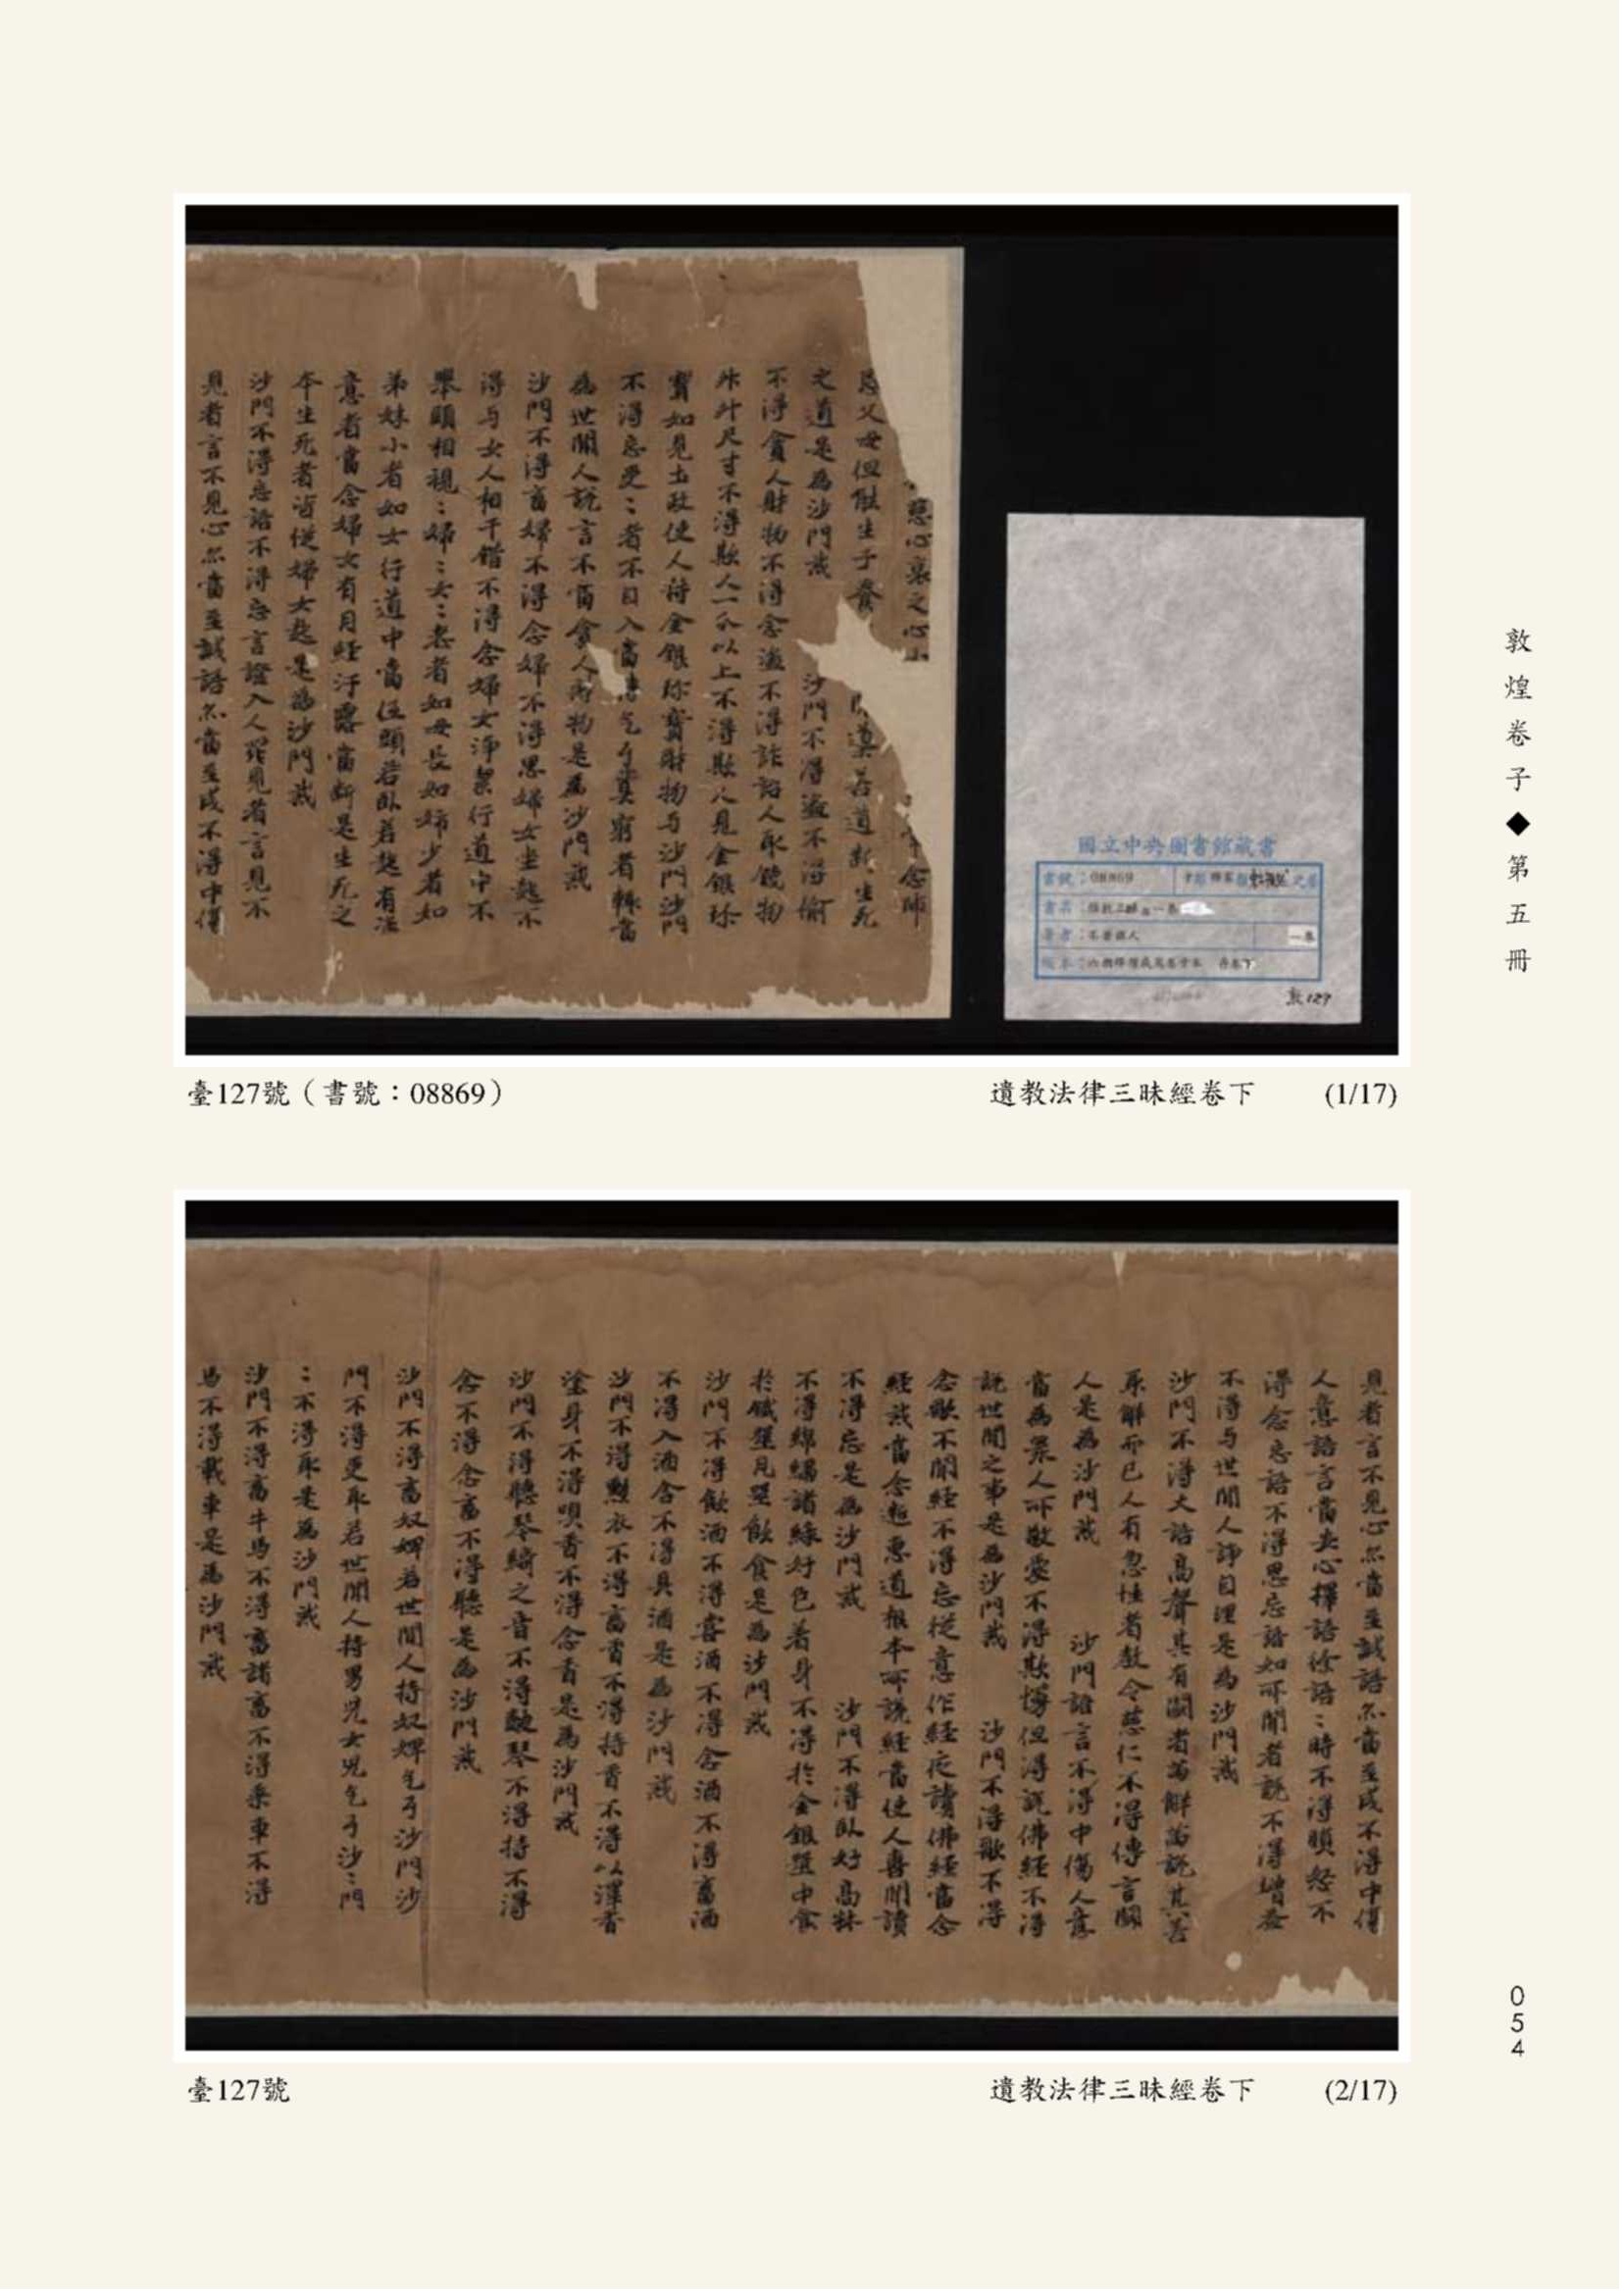 慈心哀之心
念師
恩父母但能生子養
道若道斷生死
之道是為沙門戒
沙門不得盜不得偷
不得貪人財物不得念盜不得詐語人取錢物
升斗尺寸不得欺人一分以上不得欺人見金銀珍
寶如見土政使人持金銀珍寶財物与沙門沙門
不得忘受〻者不自入當
乞丐貧窮者輙當
為世間人說言不當貪人財物是為沙門戒
沙門不得畜婦不得念婦不得思婦女坐起不
得与女人相干錯不得念婦女淨潔行道中不
舉頭相視〻婦〻女〻老者如母長如姉少者如
弟妹小者如女行道中當低頭若臥若起有婬
意者當念婦女有月經汙露當斷是生死之
本生死者皆從婦女起是為沙門戒
沙門不得忘語不得忘言證入人罪見者言見不
見者言不見心亦當至誠語亦當至成不得中傷
國立中央圖書館藏書
書號：08869
書名：
著者：
一卷
版本：
敦127
臺127號（書號：08869）
遺教法律三昧經卷下
(1/17)
見者言不見心亦當至誠語亦當至成不得中傷
人意語言當夬心擇語徐語〻時不得瞋怒不
得念忘語不得思忘語如所聞者說不得增益
不得与世間人諍自理是為沙門戒
沙門不得大語高聲其有鬬者當解當說其善
系解而已人有忽恠者教令慈仁不得傳言鬬
人是為沙門戒
沙門語言不得中傷人意
當為衆人所敬愛不得欺慢但得說佛經不得
說世間之事是為沙門戒
沙門不得歌不得
念歌不聞經不得忘從意作經從讀佛經當念
經戒當念遮惡道根本所說經當使人喜聞讀
不得忘是為沙門戒
沙門不得臥好高牀
不得綿繡諸綵好色着身不得扵金銀噐中食
扵鐵噐瓦噐飲食是為沙門戒
沙門不得飲酒不得嘗酒不得念酒不得畜酒
不得入酒舍不得具酒是為沙門戒
沙門不得熏衣不得畜香不得持香不得以澤香
塗身不得嗅香不得念香是為沙門戒
沙門不得聽琴綺之音不得鼓琴不得持不得
念不得念畜不得聽是為沙門戒
沙門不得畜奴婢若世間人持奴婢乞丐沙門沙
門不得更取若世間人持男兒女兒乞丐沙〻門
〻不得取是為沙門戒
沙門不得畜牛馬不得畜諸畜不得乘車不得
馬不得載車是為沙門戒
臺127號
遺教法律三昧經卷下
(2/17)
敦煌卷子◆第五冊
054